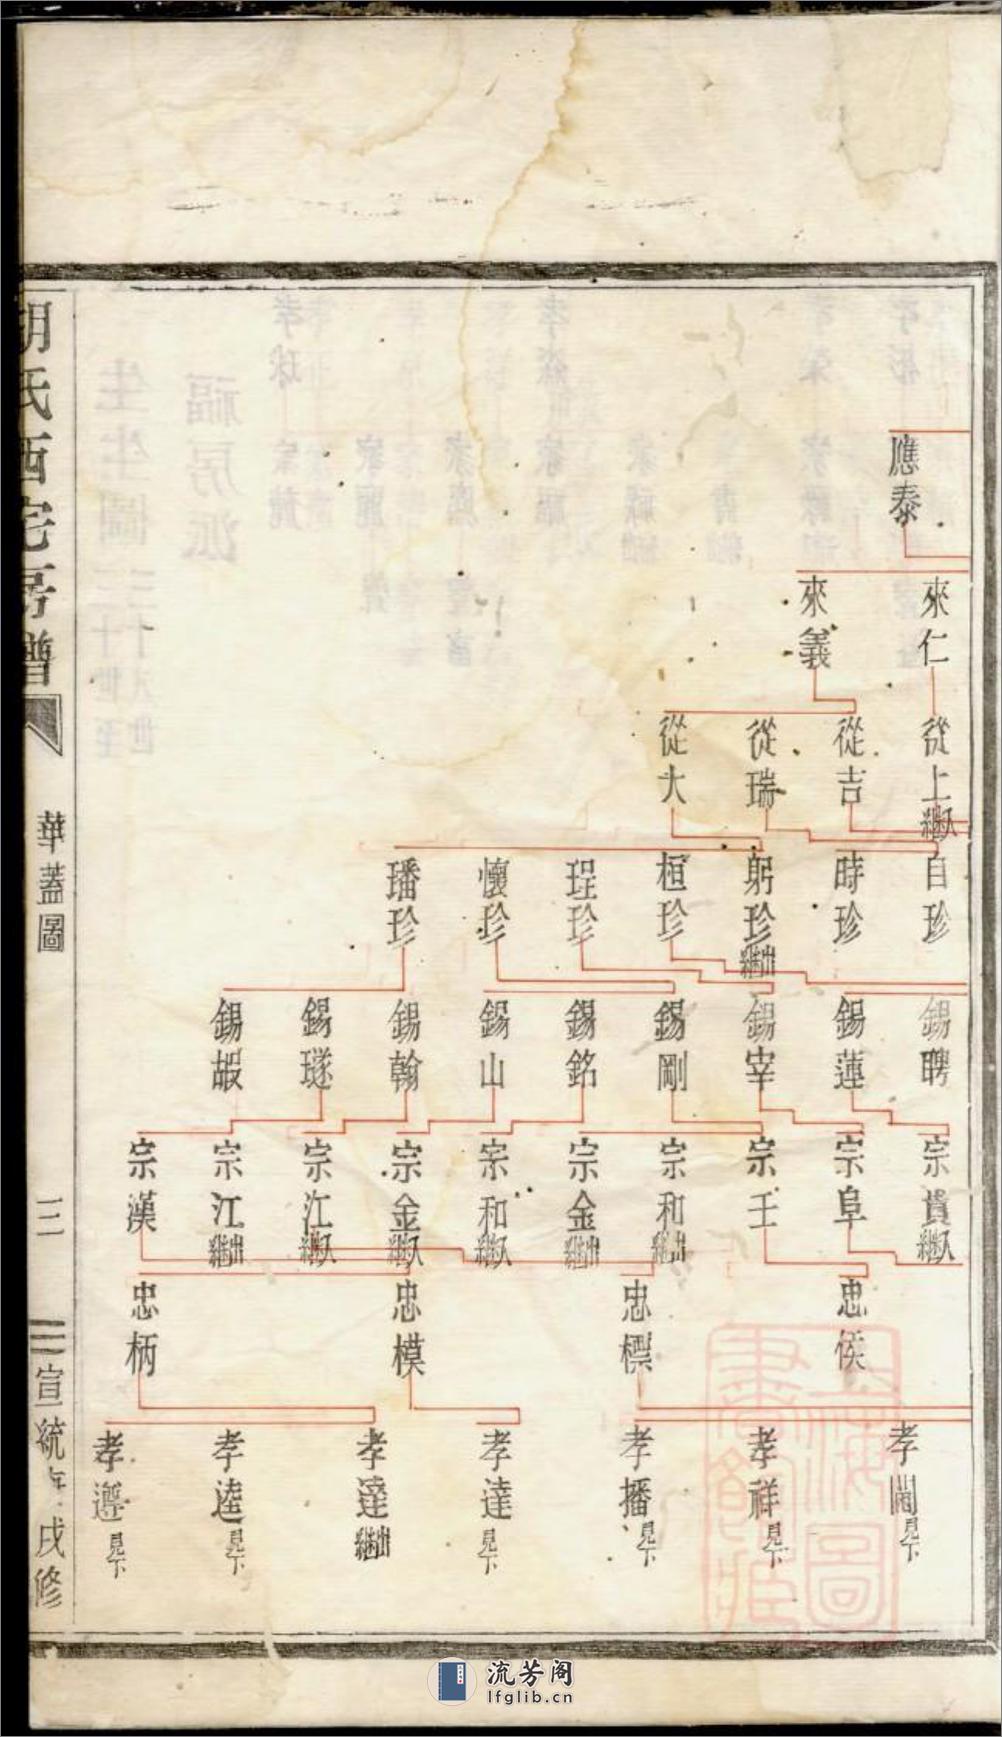 應泰
來仁 來義
從上 入繼 從吉 從瑞 從大
自珍 時珍 躬珍 出繼 桓珍 珵珍 懷珍 璠珍
錫聘 錫蓮 錫宰 錫剛 錫銘 錫山 錫翰 錫璲 錫嘏
宗貴 入繼 宗阜 宗王 宗和 出繼 宗金 出繼 宗和 入繼 宗金 入繼 宗江 入繼 宗江 出繼 宗漢
忠侯 忠標 忠模 忠柄
孝閶 見下 孝祥 見下 孝播 見下 孝達 見下 孝達 出繼 孝逵 見下 孝遵 見下
胡氏西宅房譜
華蓋圖
三
宣統庚戌修
流芳阁
lfglib.cn